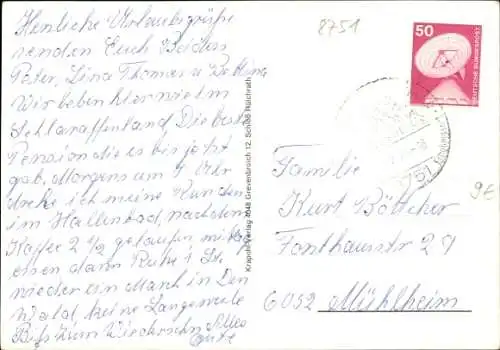 8751
Herzliche Urlaubsgrüße
senden Euch Beiden
Peter, Lina Thomas u Bettina
Wir leben hier wie im
Schlaraffenland Die beste
Pension die es bis jetzt
gab. Morgens um 7 Uhr
drehe ich meine Runden
im Hallenbad, nach dem
Kaffee 2 1/2 gelaufen, mittag
essen dann Ruhe 1 St.
wieder ein Marsch in den
Wald keine Langeweile
Bis zum Wiedersehn Alles
Gute
Krapohl-Verlag 4048 Grevenbroich 12, Schloß Hülchrath
50
DEUTSCHE BUNDESPOST
8751
Familie
Kurt Böttcher
Fonthausstr 27
6052 Mühlheim
9€